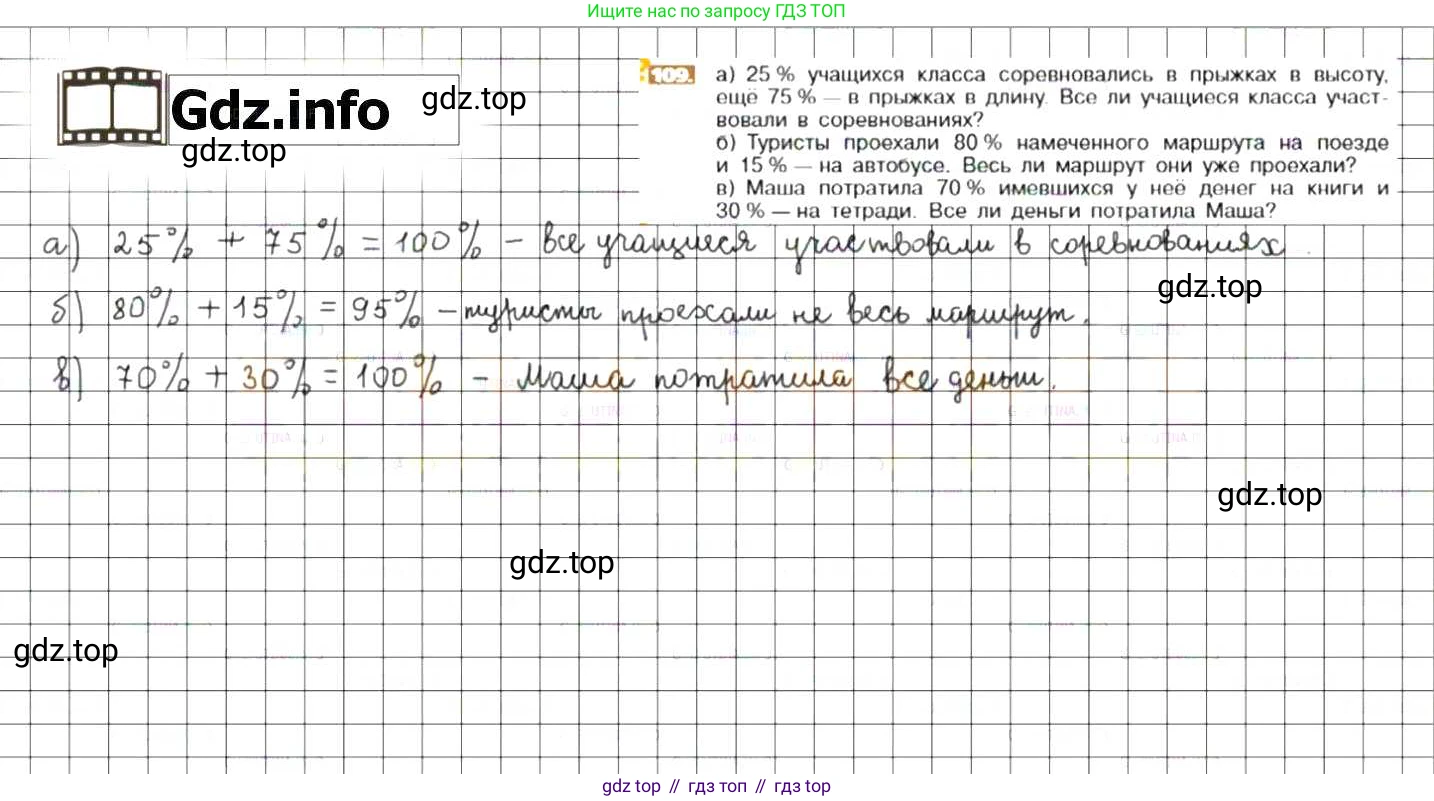 Ищите нас по запросу ГДЗ ТОП
Gdz.info
gdz.top
gdz.top
109.
а) 25 % учащихся класса соревновались в прыжках в высоту,
ещё 75 % — в прыжках в длину. Все ли учащиеся класса участ-
вовали в соревнованиях?
б) Туристы проехали 80 % намеченного маршрута на поезде
и 15 % — на автобусе. Весь ли маршрут они уже проехали?
в) Маша потратила 70 % имевшихся у неё денег на книги и
30 % — на тетради. Все ли деньги потратила Маша?
а) 25% + 75% = 100% - все учащиеся участвовали в соревнованиях.
gdz.top
б) 80% + 15% = 95% - туристы проехали не весь маршрут.
в) 70% + 30% = 100% - Маша потратила все деньги.
gdz.top
gdz.top
gdz.top
gdz top // гдз топ // гдз top